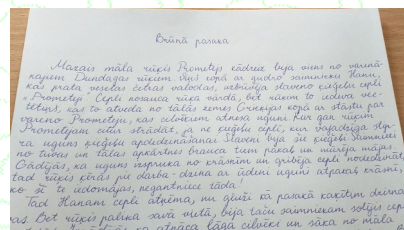 Brūnā pasaka
Mazais māla rūķis Prometejs kādreiz bija viens no varenā-
kajiem Dundagas rūķiem. Viņš kopā ar gudro saimnieku Hanu,
kas prata veselas četras valodas, uzbūvēja slaveno ķieģeļu cepli
"Prometejs". Cepli nosauca rūķa vārdā, bet rūķim to iedeva vec-
tētiņš, kas to atveda no tālās zemes Grieķijas kopā ar stāstu par
vareno Prometeju, kas cilvēkiem atnesa uguni. Kur gan rūķim
Prometejam citur strādāt, ja ne ķieģeļu ceplī, kur vajadzīga stip-
ra uguns ķieģeļu apdedzināšanai. Slaveni bija šie ķieģeļi. Saimnieki
no tuvas un tālas apkārtnes brauca tiem pakaļ un mūrēja mājas.
Gadījās, ka uguns izsprukа no krāsnīm un gribēja cepli nodedzināt,
tad rūķis ķērās pie darba - dzina ar ūdeni uguni atpakaļ krāsnī,
ko šī te iedomājas, negantniece tāda!
Tad Hanam cepli atņēma, nu gluži kā pasakā kaķītim dzirna-
vas. Bet rūķis palika savā vietā, bija taču saimniekam solījis cep-
atnāca bāda cilvēki un sāka no māla